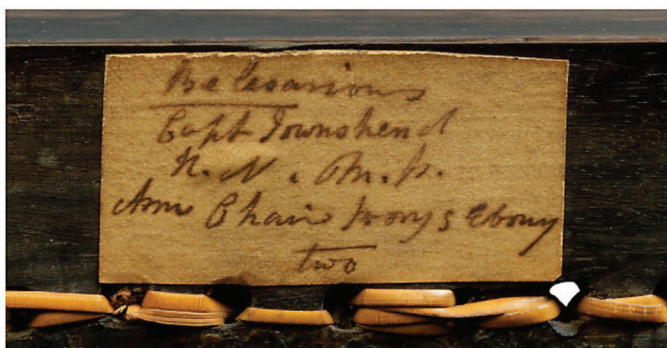 Belesarious
Capt Townshend
R. N. M. P.
Arm Chair Ivory & Ebony
two